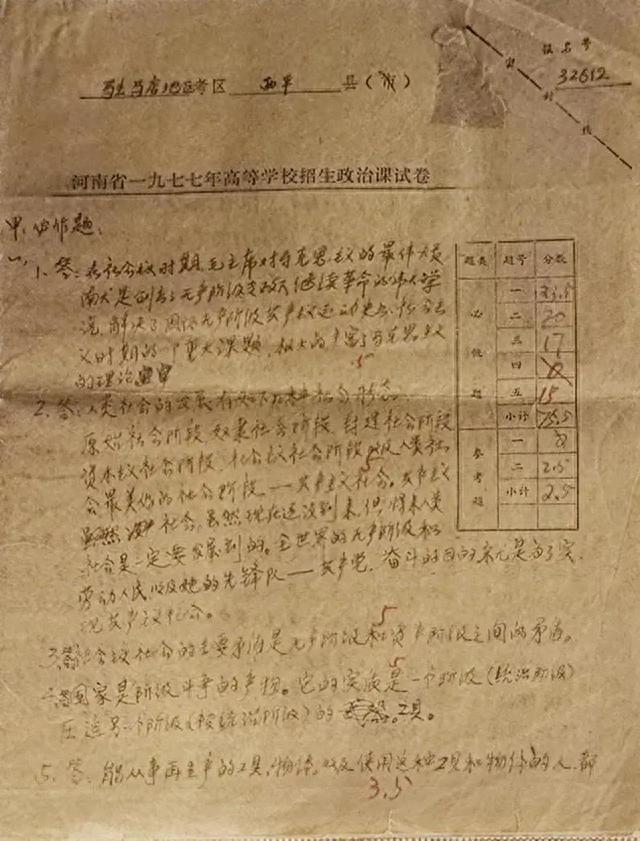 报名号
密封线
32612
驻马店地区考区 西平 县(市)
河南省一九七七年高等学校招生政治课试卷
甲、必作题:
一、1、答:在社会主义时期,毛主席对马克思主义的最伟大贡
献是创立了无产阶级专政下继续革命的伟大学
说,解决了国际无产阶级共产主义运动史上
义时期的一个重大课题,极大的丰富了马克思主义
的理论
.5
2、答:人类社会的发展有如下几种社会形态
原始社会阶段,奴隶社会阶段,封建社会阶段
资本主义社会阶段,社会主义社会阶段,以及人类社
5
会最美好的社会阶段——共产主义社会。共产主义
社会,虽然现在还没到来,但将来人类
社会是一定要发展到的。全世界的无产阶级和
劳动人民以及她的先锋队——共产党,奋斗的目的
现共产主义社会。
5
3、答:社会主义社会的主要矛盾是无产阶级和资产阶级之间的矛盾。
5
4、答:国家是阶级斗争的产物。它的实质是一个阶级(统治阶级)
压迫另一个阶级(被统治阶级)的工具。
5、答:能从事再生产的工具、物体,以及使用这种工具和物体的人,都
3.5
题类 题号 分数
必作题 一 23.5
二 20
三 17
四
五 15
小计 75.5
参考题 一 0
二 2.5
小计 2.5